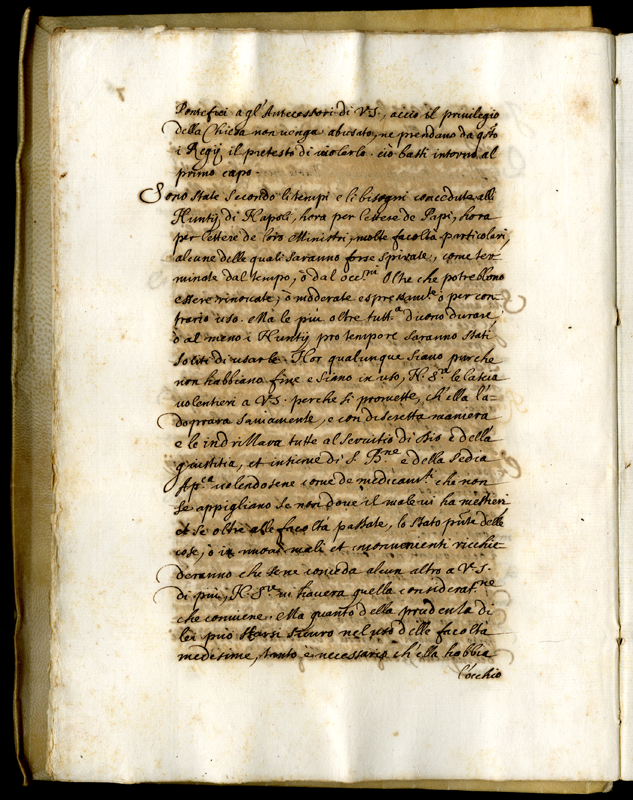 Pontefici a gl'Antecessori di V.S., acciò il privilegio
della Chiesa non venga abusato, ne prendano da qsto
i Regij il pretesto di violarlo. ciò basti intorno al
primo capo.
Sono state secondo li tempi e li bisogni concedute alli
Nuntij di Napoli, hora per lettere de Papi, hora
per lettere de loro Ministri, molte facoltà particolari,
alcune delle quali saranno forse spirate, come ter
minate dal tempo, ò dal occ.ni Oltre che potrebbono
essere rinocate, ò moderate espressam.te ò per con
trario uso. Ma le più oltre tutt.a devono durare,
ò al meno i Nuntij pro tempore saranno stati
soliti di usarle. Hor qualunque siano purche
non habbiano fine e siano in uso, N. S.re le lascia
volentieri a V.S. perche si promette, ch'ella l'a=
doprarà saviamente, e con discretta maniera
e le indrizzarà tutte al servitio di Dio e della
giustitia, et insieme di S. B.ne e della Sedia
Ap.ca valendosene come de medicam.ti che non
se appigliano se non dove il male vi ha mestieri
et se oltre alle facoltà passate, lo stato pnte delle
cose, ò in nuovi mali et inconvenienti richie
deranno che sene conceda alcun altro a V.S.
di più, N. S.re vi haverà quella considerat.ne
che conviene. Ma quanto della prudenza di
lei può starsi sicuro nel uso delle facoltà
medesime, tanto è necessario ch'ella habbia
l'occhio